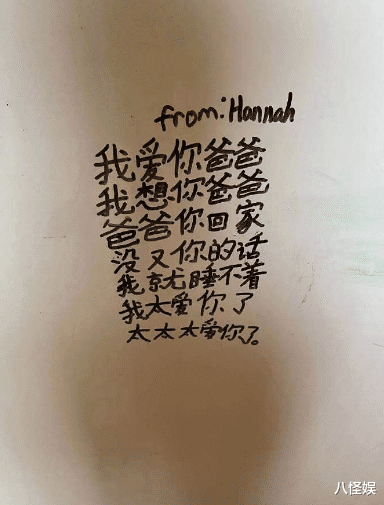 from: Hannah
我爱你爸爸
我想你爸爸
爸爸你回家
没又你的话
我就睡不着
我太爱你了
太太太爱你了。
八怪娱